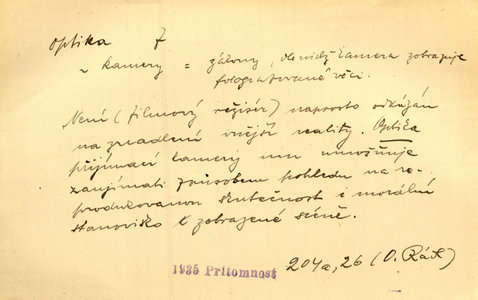 optika f
~ kamery = zákony, dle nichž kamera zobrazuje
fotografované věci.
Není (filmový režisér) naprosto odkázán
na zrcadlení vnější reality. Optika
přijímací kamery mu umožňuje
zaujímati způsobem pohledu na re-
produkovanou skutečnost i morální
stanovisko k zobrazené scéně.
1935 Přítomnost 204a, 26 (O. Rádl)